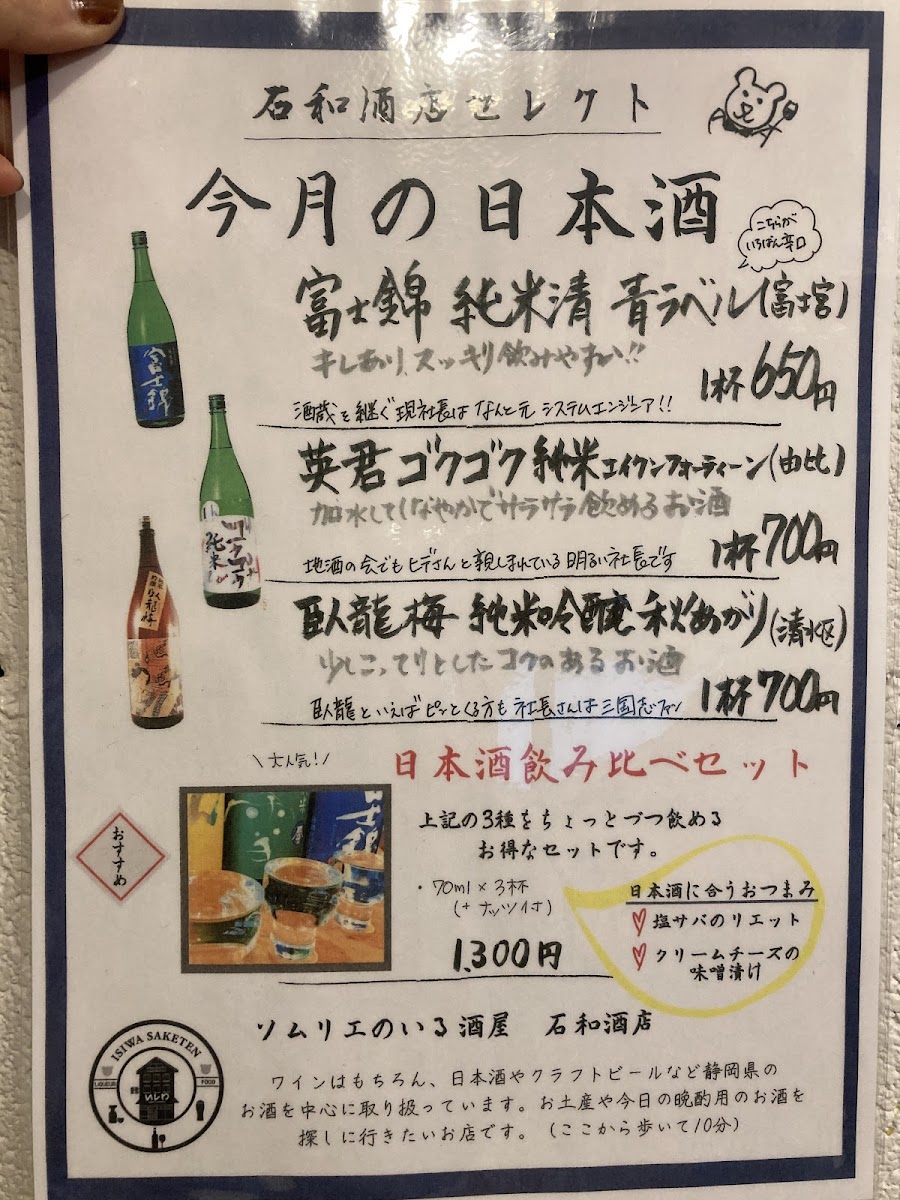 石和酒店セレクト
今月の日本酒
こちらが
いちばん辛口
富士錦 純米清 青ラベル(富士宮)
キレあり、スッキリ飲みやすい!!
1杯650円
酒蔵を継ぐ現社長はなんと元システムエンジニア!!
英君 ゴクゴク 純米 エイクンフォーティーン(由比)
加水してしなやかでサラサラ飲めるお酒
1杯700円
地酒の会でもヒデさんと親しまれている明るい社長です
臥龍梅 純米吟醸 秋あがり(清水区)
少しこってりとしたコクのあるお酒
1杯700円
臥龍といえばピンとくる方も 社長さんは三国志ファン
富士錦
純米
ゴクゴク
臥龍梅
\大人気!/
日本酒飲み比べセット
おすすめ
上記の3種をちょっとづつ飲める
お得なセットです。
・70ml×3杯
(+ナッツ付)
1,300円
日本酒に合うおつまみ
♡塩サバのリエット
♡クリームチーズの
味噌漬け
富士錦
ソムリエのいる酒屋 石和酒店
ISIWA SAKETEN
LIQUEUR
FOOD
いしわ
ワインはもちろん、日本酒やクラフトビールなど静岡県の
お酒を中心に取り扱っています。お土産や今日の晩酌用のお酒を
探しに行きたいお店です。(ここから歩いて10分)